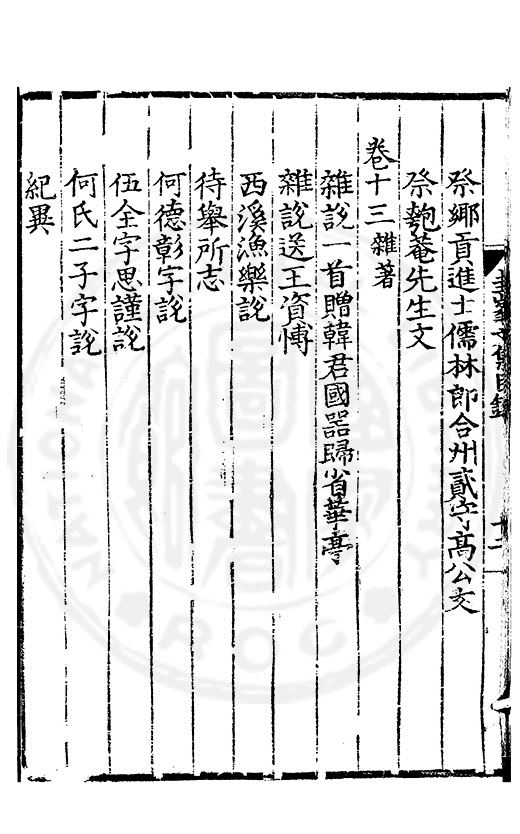 祭鄉貢進士儒林郎合州貳守髙公文
祭匏菴先生文
卷十三 雜著
雜說一首贈韓君國器歸省華亭
雜說送王資愽
西溪漁樂說
待舉所志
何德彰字說
伍全字思謹說
何氏二子字說
紀異
集目錄
十二